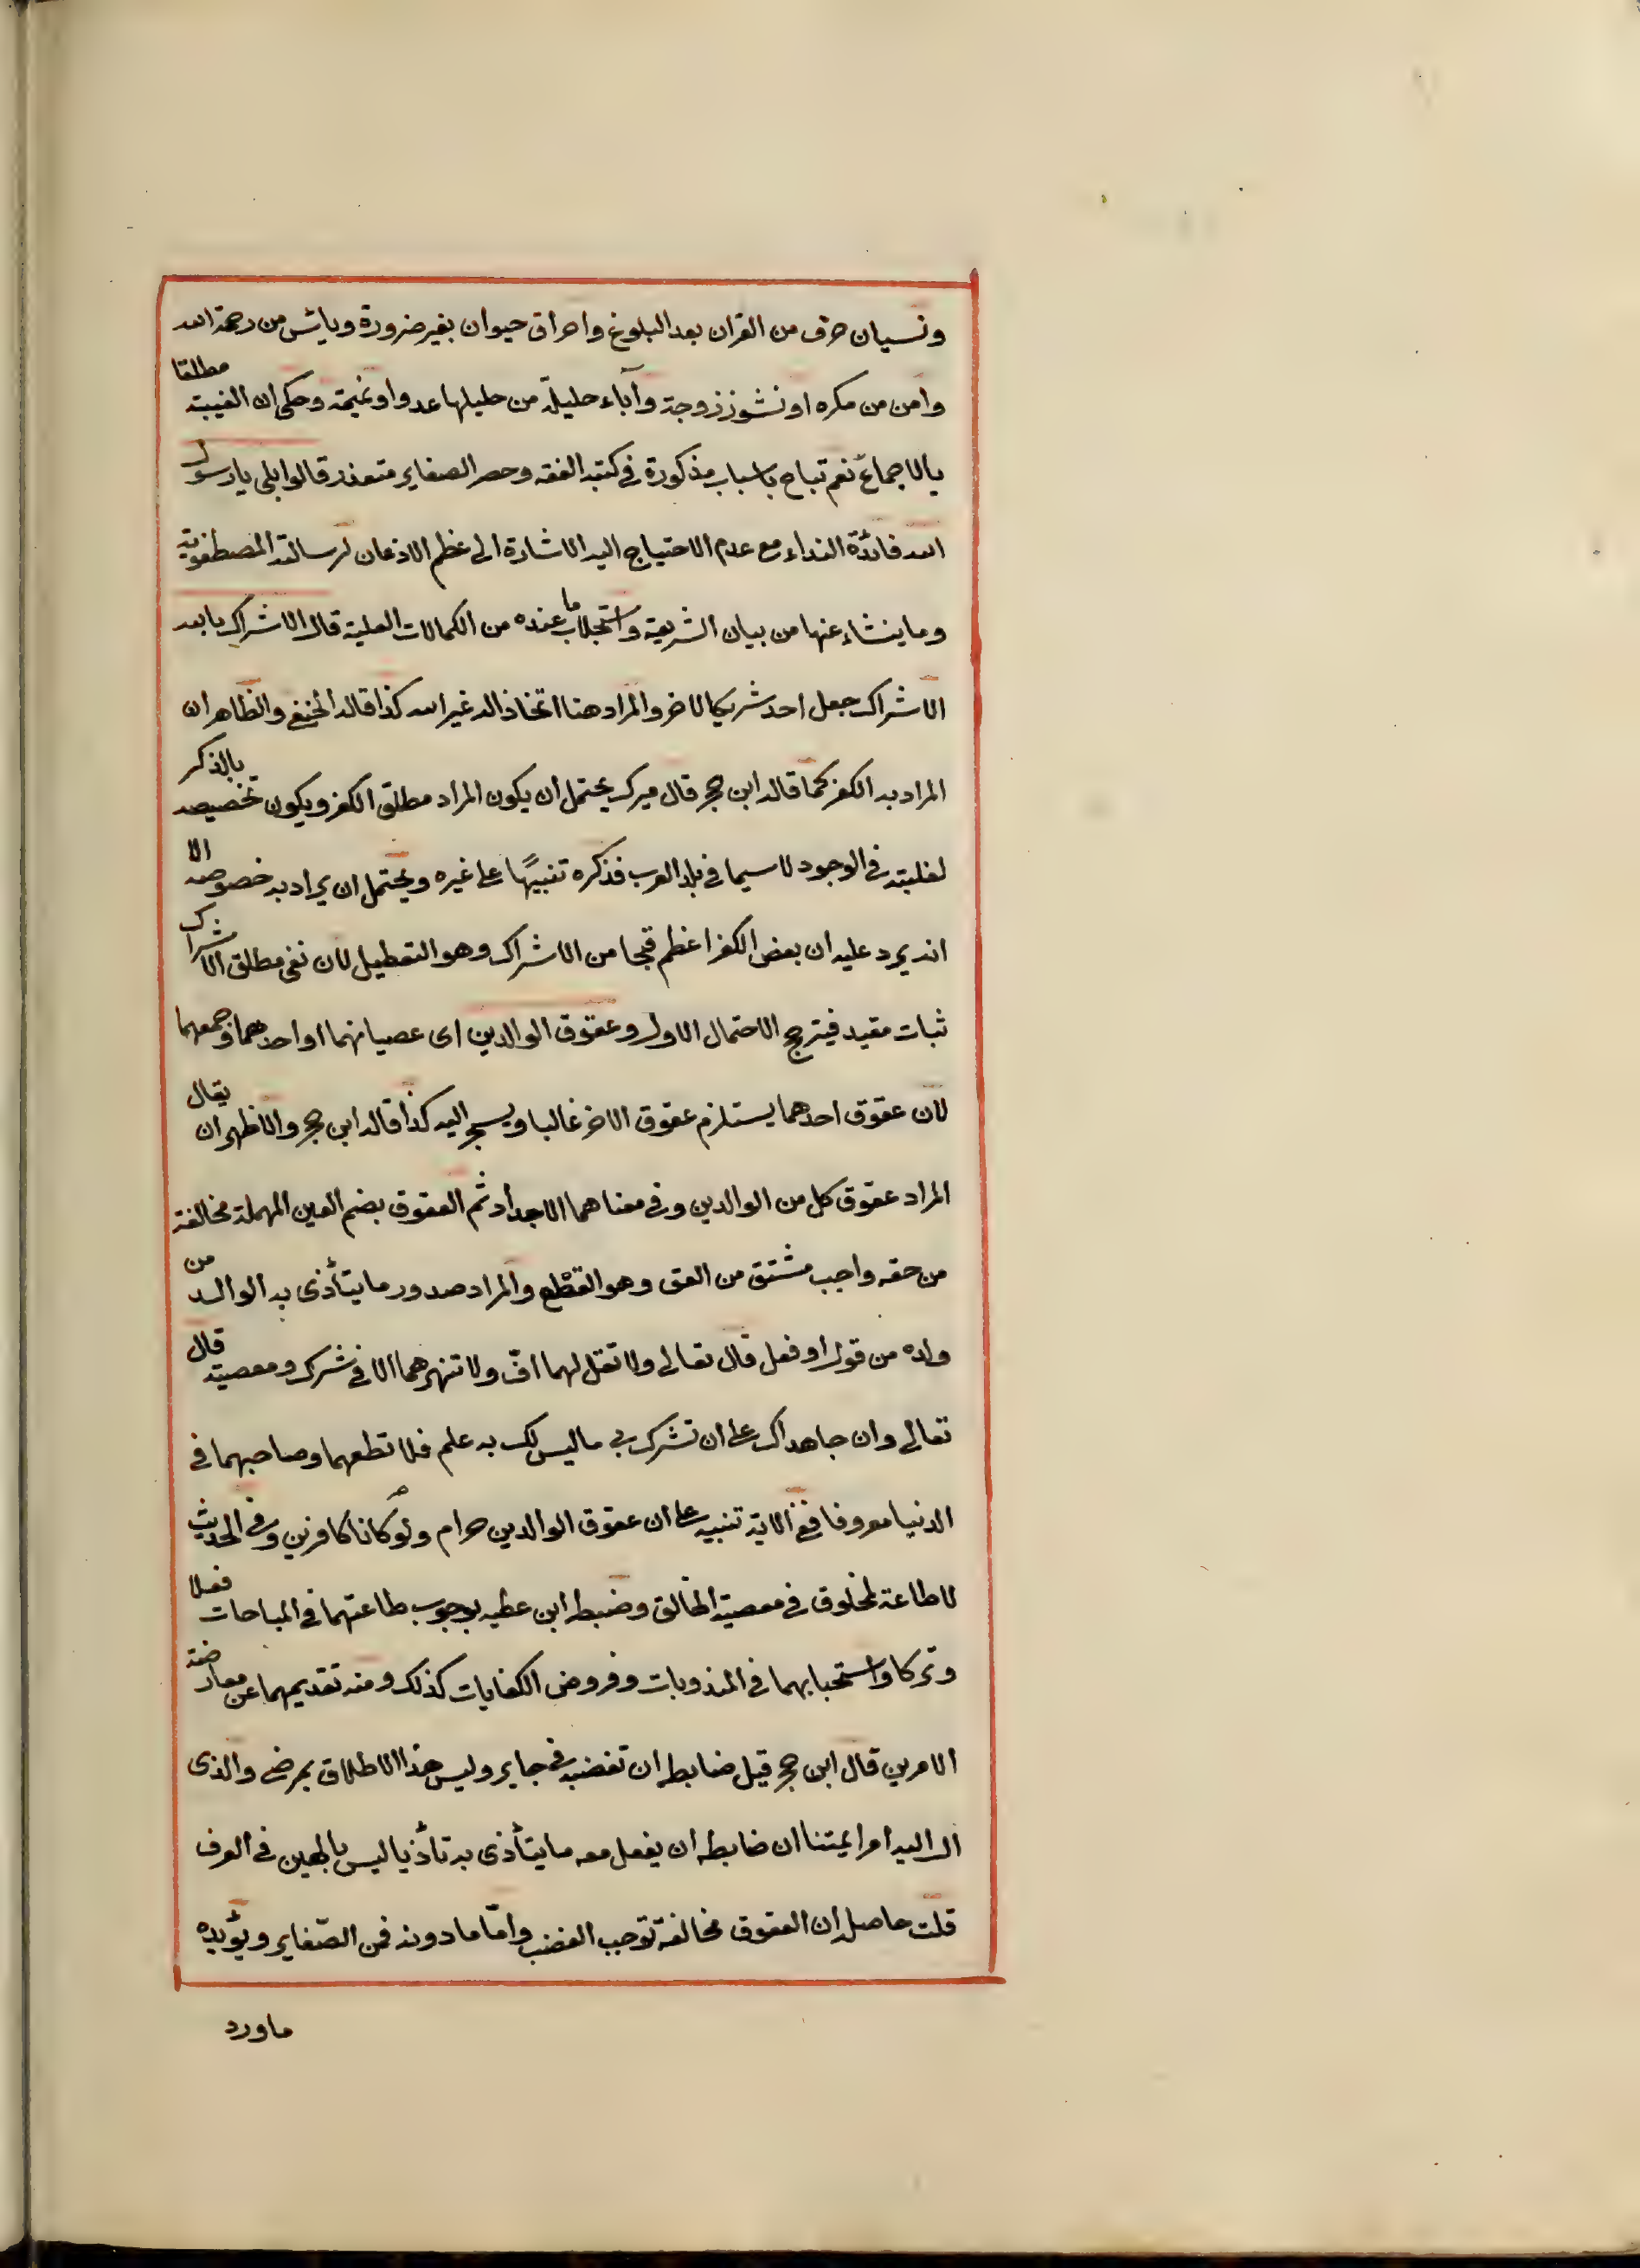 ونسيان حرف من القران بعد البلوغ واحراق حيوان بغير ضرورة وياس من رحمة الله
وامن من مكره او نشوز زوجة وآباء حليلة من حليلها عدوا ونميمة وحكى ان الغيبة مطلقا
بالاجماع نعم تباح باسباب مذكورة في كتب الفقه وحصر الصغاير متعذر قالوا بلى يا رسول
الله فائدة النداء مع عدم الاحتياج اليه الاشارة الى عظم الاذعان لرسالته المصطفوية
وما ينشاء عنها من بيان الشريعة واستجلاب ما عنده من الكمالات العلية قال الاشراك بالله
الاشراك جعل احد شريكا لاخر والمراد هنا اتخاذ اله غير الله كذا قاله الحنفي والظاهر ان
المراد به الكفر كما قاله ابن حجر قال ميرك يحتمل ان يكون المراد مطلق الكفر ويكون تخصيصه بالذكر
لغلبته في الوجود لا سيما في بلد العرب فذكره تنبيهًا على غيره ويحتمل ان يراد به خصوصه الا
انه يرد عليه ان بعض الكفر اعظم قبحا من الاشراك وهو التعطيل لان نفي مطلق الاشراك
ثبات مقيد فيترجح الاحتمال الاول وعقوق الوالدين اى عصيانهما او احدهما وجمعهما
لان عقوق احدهما يستلزم عقوق الاخر غالبا ويسجر اليه كذا قاله ابن حجر والاظهر ان يقال
المراد عقوق كل من الوالدين وفي معناهما الاجداد ثم العقوق بضم العين المهملة مخالفة
من حقه واجب مشتق من العق وهو القطع والمراد صدور ما يتأذى به الوالد من
ولده من قول او فعل قال تعالى ولا تقل لهما افّ ولا تنهرهما الا في شرك ومعصية قال
تعالى وان جاهداك على ان تشرك بي ما ليس لك به علم فلا تطعهما وصاحبهما في
الدنيا معروفا ففي الاية تنبيه على ان عقوق الوالدين حرام ولو كانا كافرين وفي الحديث
لا طاعة لمخلوق في معصية الخالق وضبطه ابن عطيه بوجوب طاعتهما في المباحات فعلا
وتركا واستحبابهما في المندوبات وفروض الكفايات كذلك ومنه تقديمهما عن معارضة
الامرين قال ابن حجر قيل ضابطه ان تغضبه في جاير وليس هذا الاطلاق بمرضي والذى
ال اليه امر ايمتنا ان ضابطه ان يفعل معه ما يتأذى به تأذيا ليس بالهين في العرف
قلت حاصله ان العقوق مخالفة توجب الغضب وامّا ما دونه فمن الصّغاير ويؤيده
ما ورد